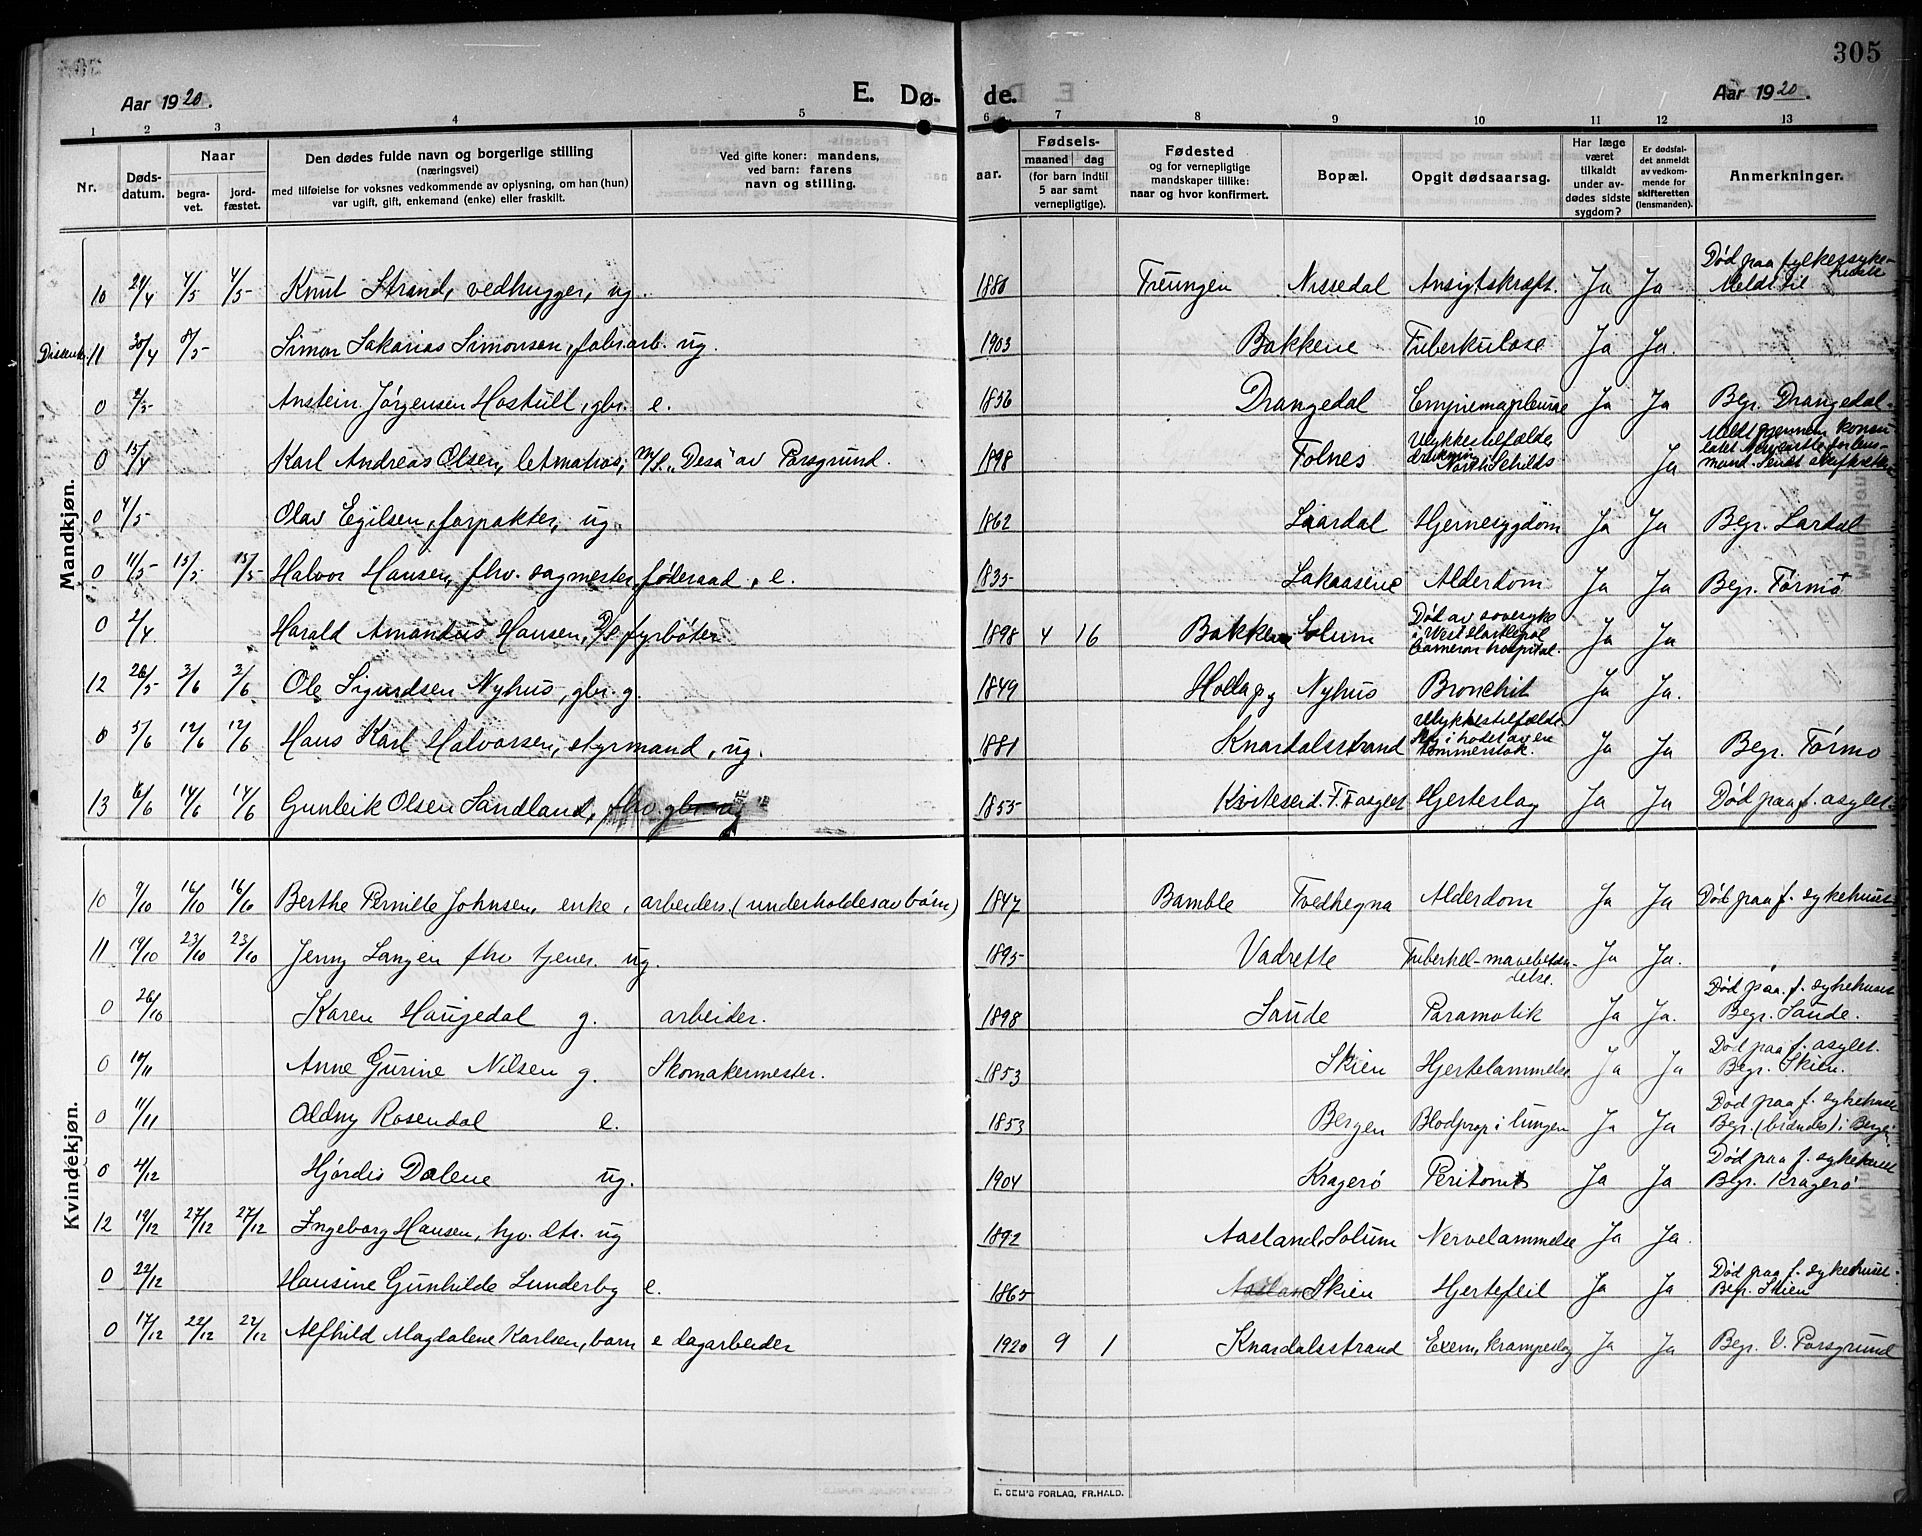 305
Aar 1920.
E. Dø-
de.
Aar 1920.
1 2 3 4 5 6 7 8 9 10 11 12 13
Nr.
Døds-
datum.
Naar
begra-
vet.
jord-
fæstet.
Den dødes fulde navn og borgerlige stilling
(næringsvei)
med tilføielse for voksnes vedkommende av oplysning, om han (hun)
var ugift, gift, enkemand (enke) eller fraskilt.
Ved gifte koner: mandens,
ved barn: farens
navn og stilling.
aar.
Fødsels-
maaned dag
(for barn indtil
5 aar samt
vernepligtige).
Fødested
og for vernepligtige
mandskaper tillike:
naar og hvor konfirmert.
Bopæl.
Opgit dødsaarsag.
Har læge
været
tilkaldt
under av-
dødes sidste
sygdom?
Er dødsfal-
det anmeldt
av vedkom-
mende for
skifteretten
(lensmanden).
Anmerkninger.
Mandkjøn.
10 29/4 4/5 4/5 Knut Strand, vedhugger, ug. 1880 Treungen Nissedal Ansigtskræft. Ja Ja Død paa fylkessyke-
huset
Meldt til
11 30/4 8/5 Simon Sakarias Simonsen, fabr.arb. ug. 1903 Bakkene Tuberkulose Ja Ja.
0 2/5 Anstein Jørgensen Hostult, gbr. e. 1856 Drangedal Ja Ja Begr. Drangedal.
0 15/4 Karl Andreas Olsen, letmatros, m/s. "Desa" av Porsgrund. 1898 Folnes Ulykkestilfælde
North Schilds Ja Meldt gjennem konsu-
latet
0 4/5 Olav Egilsen, forpakter, ug. 1862 Laardal Hjernesygdom Ja Ja Begr. Lardal
0 11/5 15/5 15/5 Halvor Hansen, fhv. sagmester, føderaad, e. 1835 Lakaasene Alderdom Ja Ja Begr. Tørmo
0 2/4 Harald Amandus Hansen, D/S fyrbøter 1898 4 16 Bakkene Solum Død av sovesyke
i West Hartlepol
Cameron hospital. Ja Ja
12 26/5 3/6 3/6 Ole Sigurdsen Nyhus, gbr. g. 1849 Holla Nyhus Bronchit Ja Ja.
0 5/6 12/6 12/6 Hans Karl Halvorsen, styrmand, ug. 1881 Knardalsstrand Ulykkestilfælde
Slag i hodet av en
tømmerstok. Ja Ja Begr. Tørmo
13 6/6 14/6 14/6 Gunleik Olsen Sandland, fhv. gbr. ug 1855 Kviteseid. T. F. asylet Hjerteslag Ja Ja Død paa f. asylet.
Kvindekjøn.
10 9/10 16/10 16/10 Berthe Pernille Johnsen, enke, arbeiders. (underholdes av børn) 1847 Bamble Tvedhegna Alderdom Ja Ja Død paa f. sykehuset
11 19/10 23/10 23/10 Jenny Langen fhv tjener. ug. 1895 Vadrette Tuberkel-mavebetæn-
delse. Ja Ja.
0 26/10 Karen Haugedal g. arbeider. 1898 Saude Ja Ja. Død paa. f. sykehuset
Begr. Saude.
0 10/11 Anne Gurine Nilsen g. Skomakermester. 1853 Skien Hjertelammelse Ja Ja Død paa f. asylet.
Begr. Skien.
0 11/11 Oddny Rosendal e. 1853 Bergen Blodprop i lungen Ja Ja Død paa f. sykehuset
Begr. (brændes) i Bergen
0 4/12 Hjørdis Dalene ug. 1904 Kragerø Peritonit Ja Ja Død paa f. sykehuset
Begr. Kragerø
12 19/12 27/12 27/12 Ingeborg Hansen, hjv. dtr. ug 1892 Aasland, Solum Nervelammelse Ja Ja.
0 22/12 Hansine Gunhilde Lunderby e. 1865 Skien Hjertefeil Ja Ja Død paa f. sykehuset.
Begr. Skien
0 17/12 22/12 22/12 Alfhild Magdalene Karlsen, barn e dagarbeider 1920 9 1 Knardalsstrand Exem, krampeslag Ja Ja Begr. V. Porsgrund
E. SEM'S FORLAG, FR.HALD.